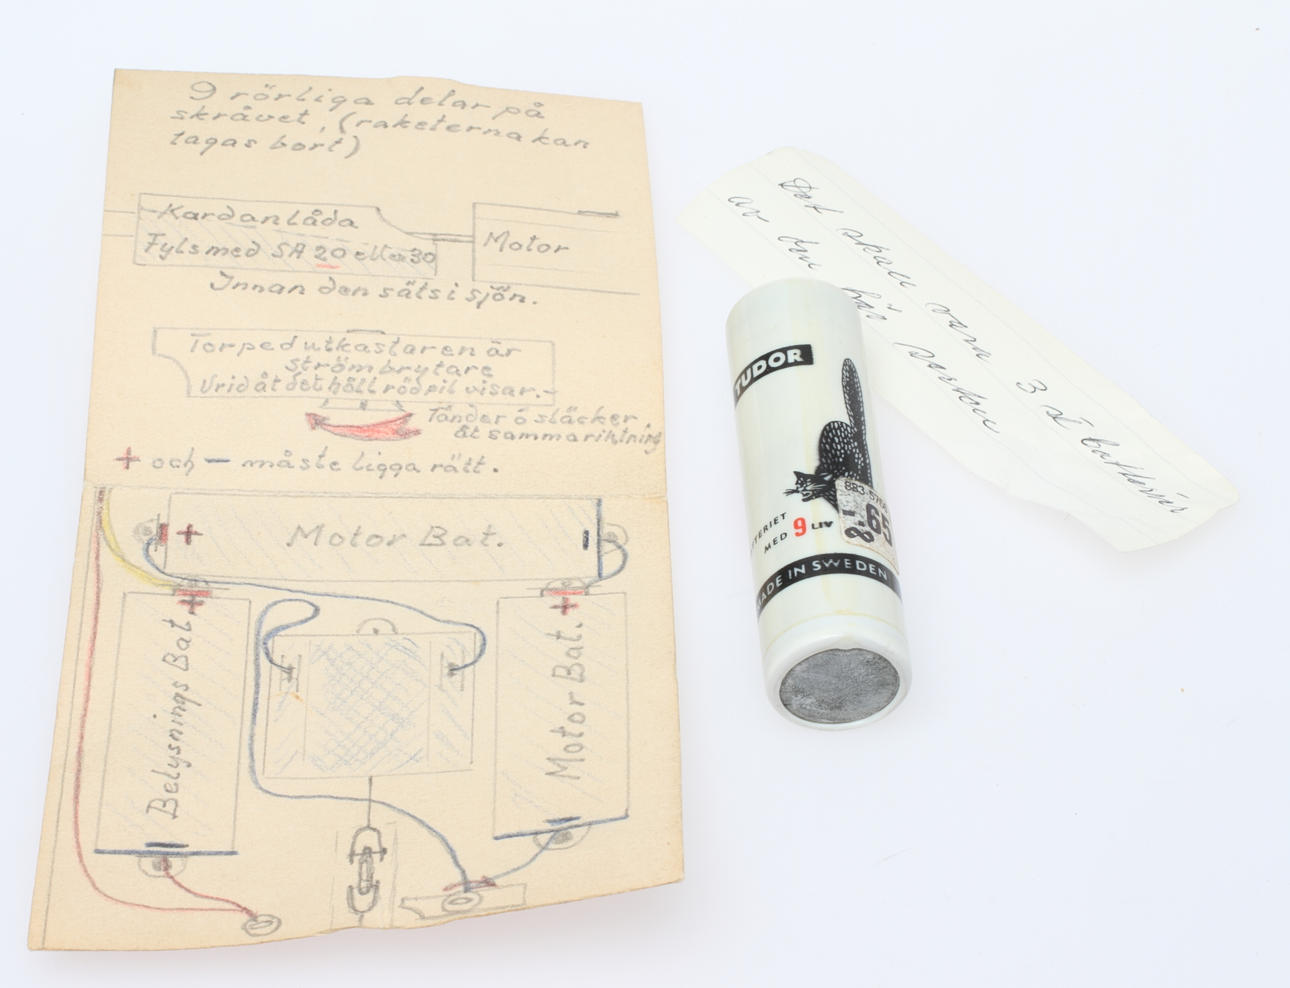 9 rörliga delar på
skråvet, (raketerna kan
tagas bort)
Kardanlåda
Fyls med SA 20 eller 30
Motor
Innan den säts i sjön.
Torpedutkastaren är
strömbrytare
Vrid åt det håll röd pil visar.-
Tänder ö släcker
åt samma riktning
+ och - måste ligga rätt.
+ Motor Bat. -
+
Belysnings Bat.
-
+
Motor Bat.
-
Det skall vara 3 st batterier
av den här sorten
TUDOR
MED 9 LIV
883-
8:65
MADE IN SWEDEN